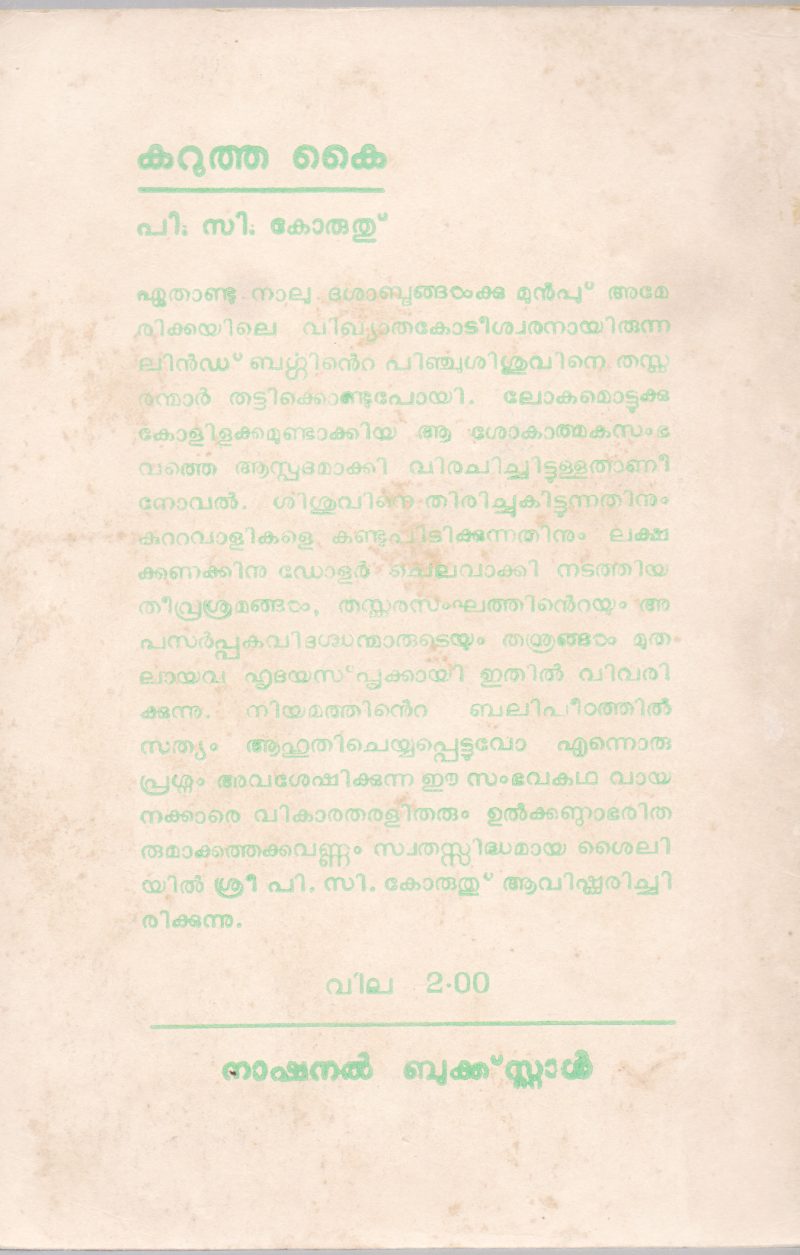 കറുത്ത കൈ
പി. സി. കോരുതു്
ഏതാണ്ടു നാലു ദശാബ്ദങ്ങൾക്കു മുൻപു് അമേ
രിക്കയിലെ വിഖ്യാതകോടീശ്വരനായിരുന്ന
ലിൻഡ് ബൎഗ്ഗിൻെറ പിഞ്ചുശിശുവിനെ തസ്ക
രന്മാർ തട്ടിക്കൊണ്ടുപോയി. ലോകമൊട്ടുക്കു
കോളിളക്കമുണ്ടാക്കിയ ആ ശോകാത്മകസംഭ
വത്തെ ആസ്പദമാക്കി വിരചിച്ചിട്ടുള്ളതാണീ
നോവൽ. ശിശുവിനെ തിരിച്ചുകിട്ടുന്നതിനും
കുററവാളികളെ കണ്ടുപിടിക്കുന്നതിനും ലക്ഷ
ക്കണക്കിനു ഡോളർ ചെലവാക്കി നടത്തിയ
തീവ്രശ്രമങ്ങൾ, തസ്കരസംഘത്തിൻെറയും അ
പസർപ്പകവിദഗ്ദ്ധന്മാരുടെയും തന്ത്രങ്ങൾ മുത
ലായവ ഹൃദയസ്പൃക്കായി ഇതിൽ വിവരി
ക്കുന്നു. നിയമത്തിൻെറ ബലിപീഠത്തിൽ
സത്യം ആഹുതിചെയ്യപ്പെട്ടുവോ എന്നൊരു
പ്രശ്നം അവശേഷിക്കുന്ന ഈ സംഭവകഥ വായ
നക്കാരെ വികാരതരളിതരും ഉൽക്കണ്ഠാഭരിത
രുമാക്കത്തക്കവണ്ണം സ്വതസ്സിദ്ധമായ ശൈലി
യിൽ ശ്രീ പി. സി. കോരുതു് ആവിഷ്കരിച്ചി
രിക്കുന്നു.
വില 2·00
നാഷനൽ ബുക്ക് സ്റ്റാൾ